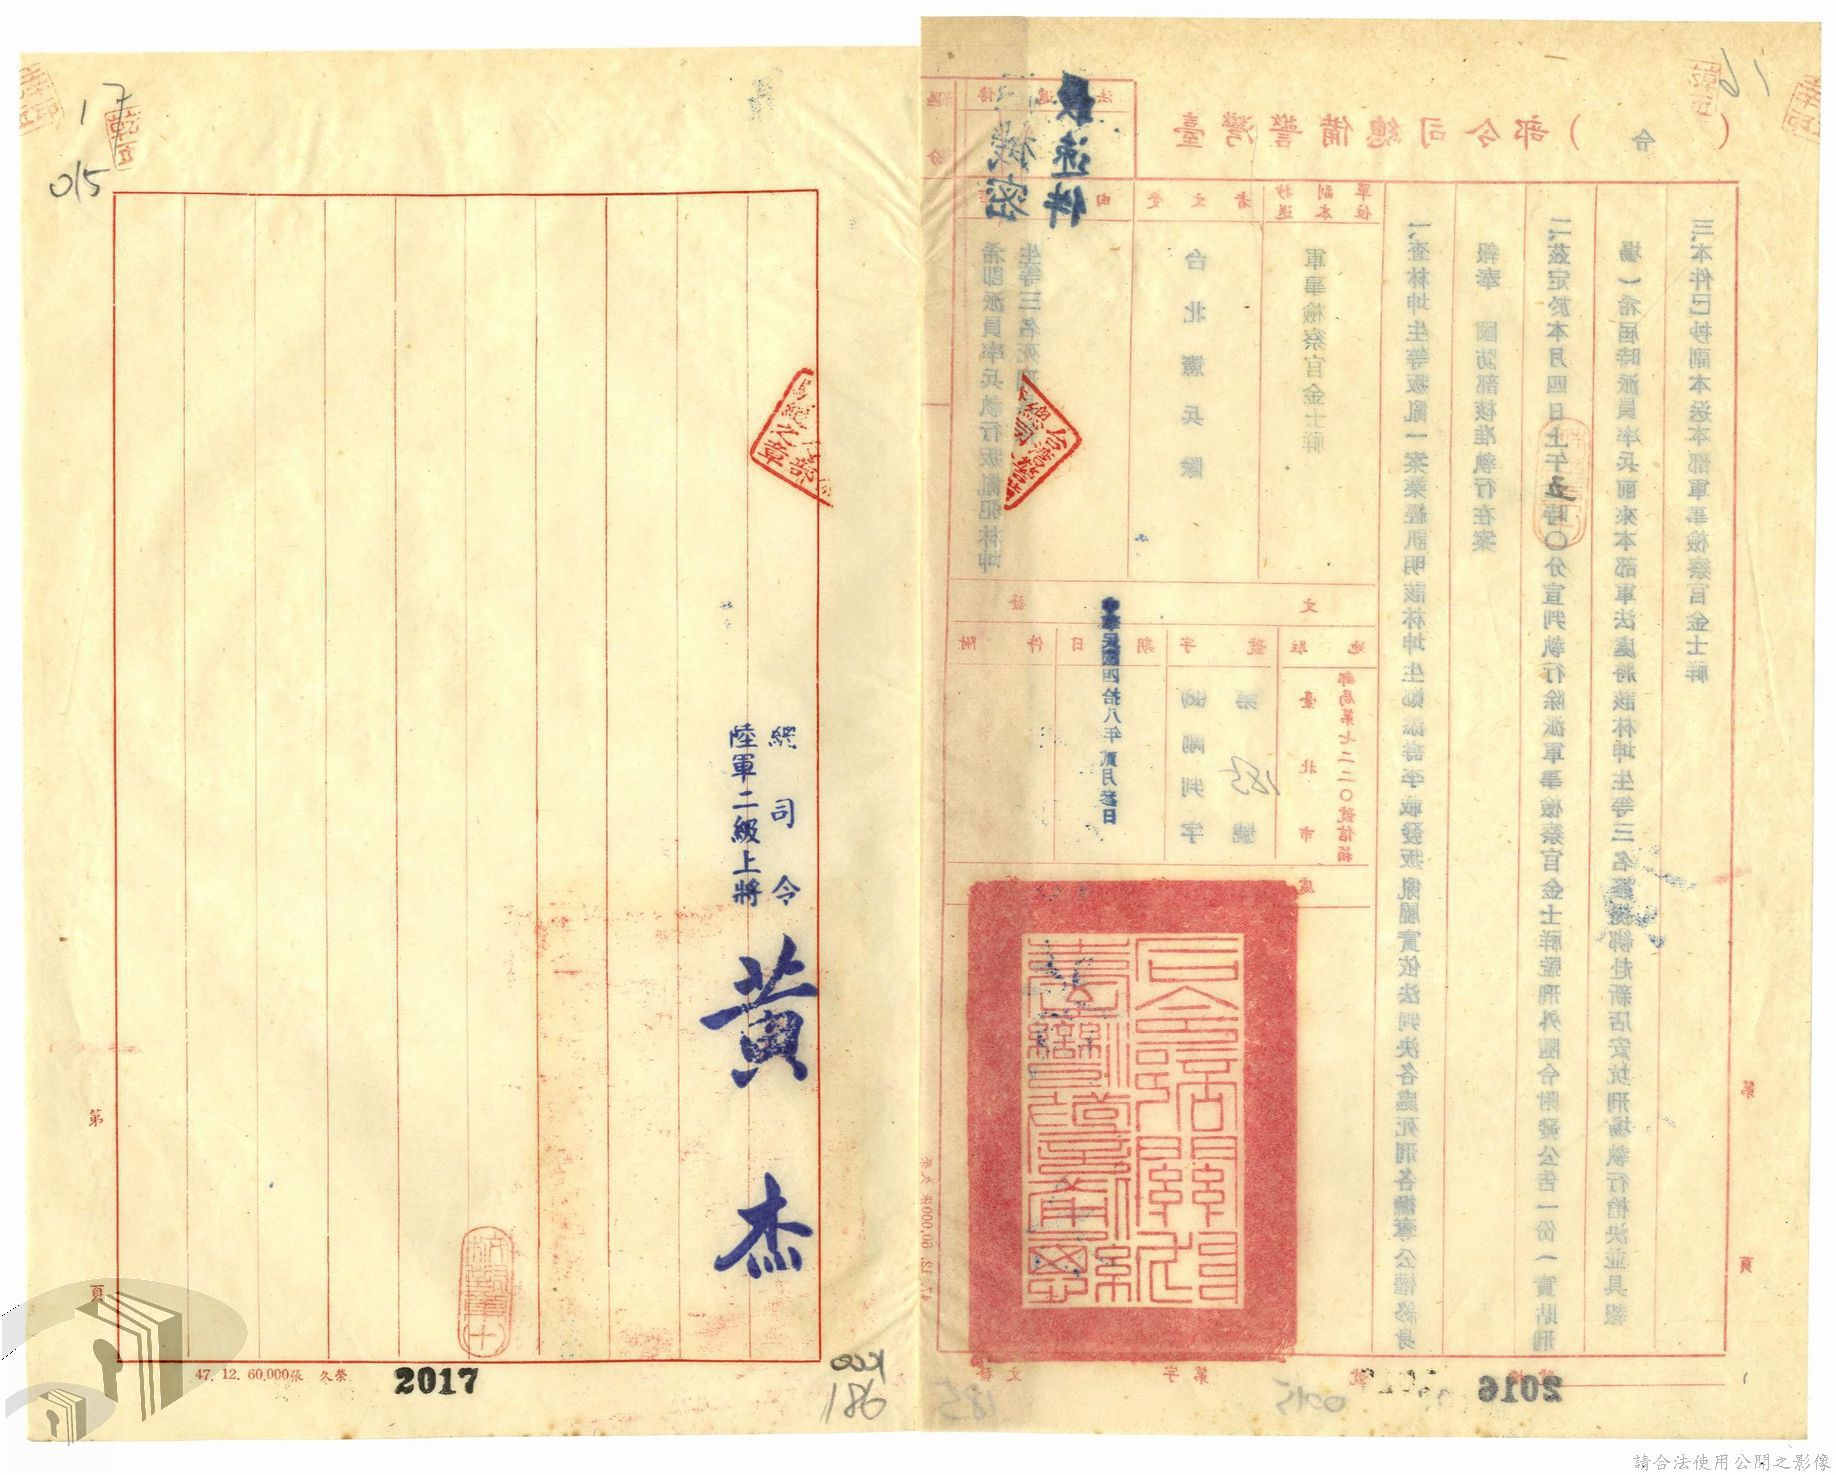 臺灣警備總司令部（令）
最速件
機密
由
希即派員率兵執行叛亂犯林坤
生等三名死刑
受文者
台北憲兵隊
副本抄送單位
軍事檢察官金士祥
發文
附件
日期
中華民國四拾八年貳月叁日
字號
剛判字
第185號
駐地
臺北市
郵局第七二二〇號信箱
一、查林坤生等叛亂一案業經訊明該林坤生鄭添壽李載發叛亂屬實依法判決各處死刑各褫奪公權終身
報奉 國防部核准執行在案
二、茲定於本月四日上午五時〇分宣判執行除派軍事檢察官金士祥監刑外令附發公告一份（實貼刑
場）希屆時派員率兵前來本部軍法處將該林坤生等三名綁赴新店安坑刑場執行槍決並具報
三、本件已抄副本送本部軍事檢察官金士祥
第
頁
16
2016
185
0015
總司令
陸軍二級上將
黃杰
17
015
第
頁
47. 12. 60,000張 久榮
2017
186
請合法使用公開之影像